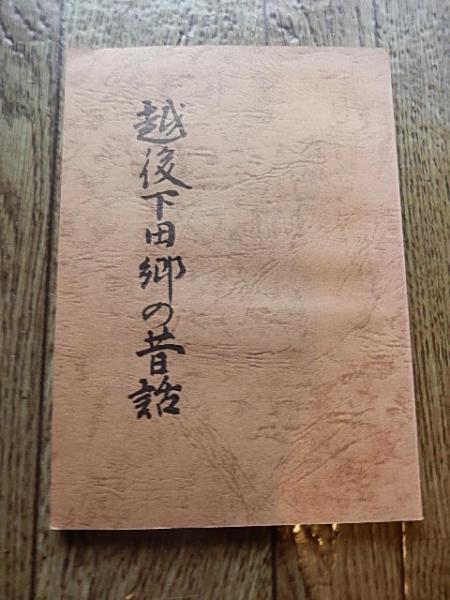 越後下田郷の昔話